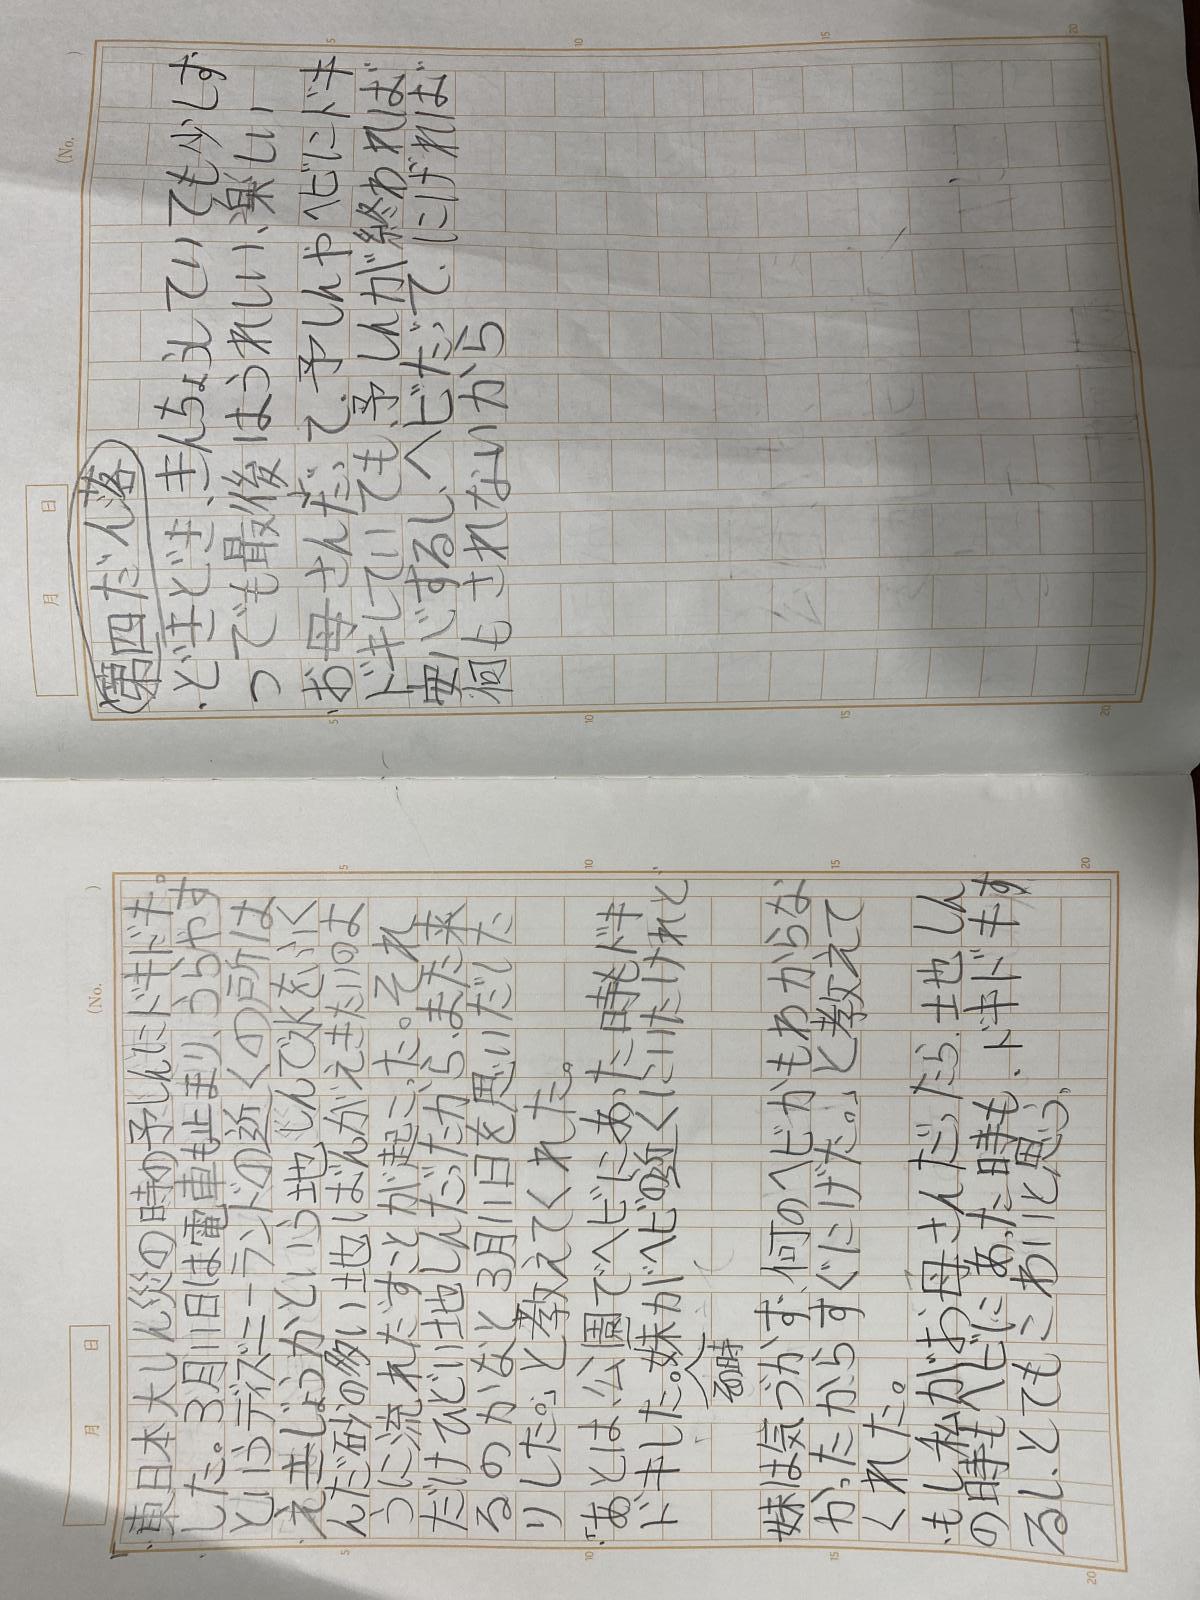 (No. )
月 日
「東日本大しん災の時の予しんにドキドキ。
した。3月11日は電車も止まり、うらやす
というディズニーランドの近くの所は
えきじょうかという地じんで水をふく
んだ砂の多い土地はばんがえきたいのよ
うに流れだすことが起こった。それ
だけひどい地しんだったから、また来
るのかなと3月11日を思いだした
りした。」と教えてくれた。
「あとは、公園でヘビにあった時もドキ
ドキした。妹がヘビの近くにいたけれど
る時
妹は気づかず、何のヘビかもわからな
かったからすぐにげた。」と教えて
くれた。
もし私がお母さんだったら、地しん
の時もヘビにあった時も、ドキドキす
るし、とてもこわいと思う。
5 10 15 20
(No. )
月 日
第四だん落
・どきどき、きんちょうしていてもぶじす
つでも最後はうれしい、楽しい
お母さんだって、予しんやヘビにドキ
ドキしていても、予しんが終われば
安心するし、ヘビだって、にげれば
何もされないから
5 10 15 20